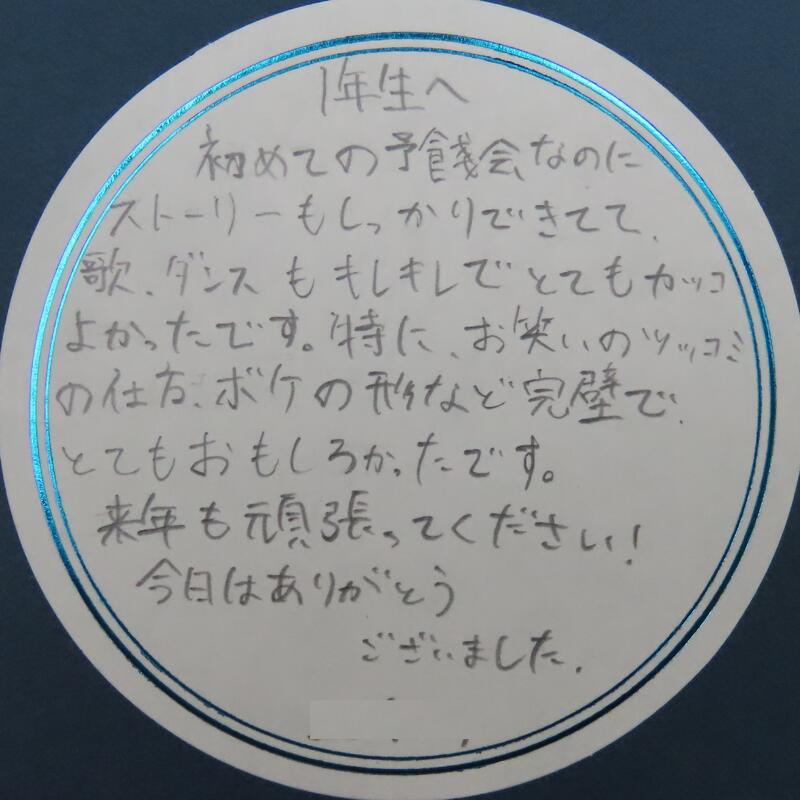 1年生へ
初めての予餞会なのに
ストーリーもしっかりできてて、
歌、ダンスもキレキレでとてもカッコ
よかったです。特に、お笑いのツッコミ
の仕方、ボケの形など完璧で、
とてもおもしろかったです。
来年も頑張ってください!
今日はありがとう
ございました。